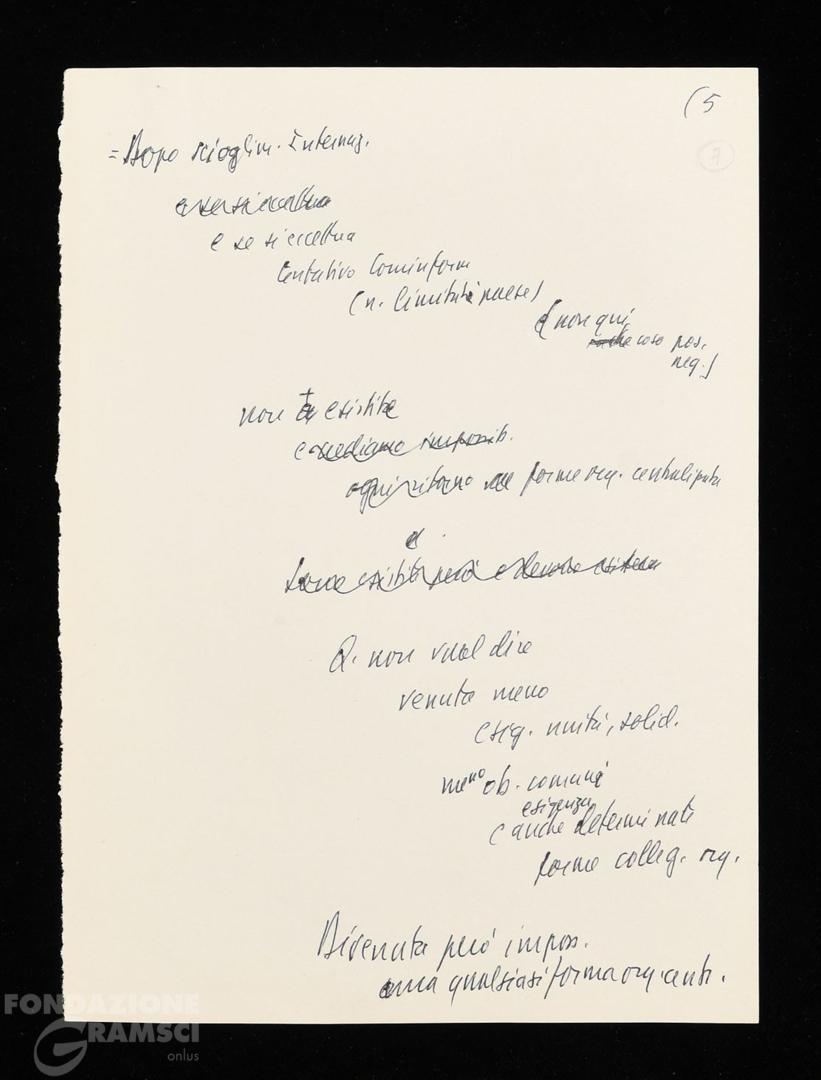 (5
7
= Dopo scioglim. Internaz.
e se si eccettua
e se si eccettua
tentativo Cominform
(n. limitati paesi)
(non qui
che cosa pos.
neg.)
non è esistita
e crediamo impossib.
ogni ritorno a forme org. centralizzata
e
Q. non vuol dire
venuta meno
esig. unità, solid.
meno ob. comuni
esigenza
e anche determinate
forme colleg. org.
Divenuta però imposs.
una qualsiasi forma org. centr.
FONDAZIONE
GRAMSCI
onlus